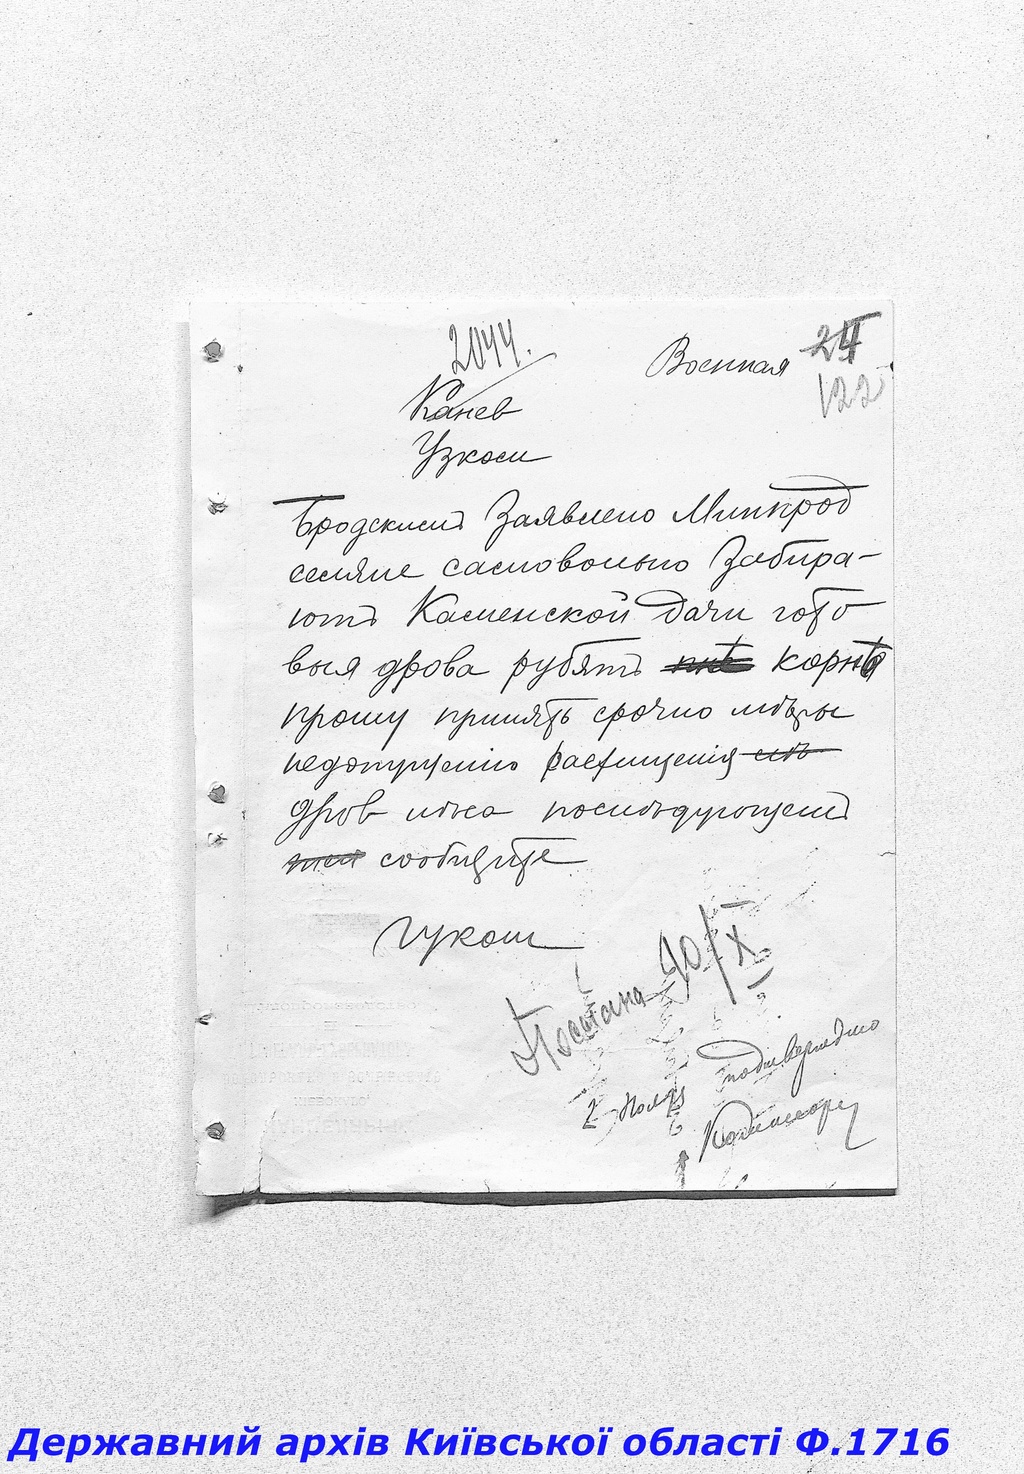 2044.
Военная 24
122
Канев
Узком
Бродским Заявлено Минпрод
селяне самовольно Забира-
ютъ Каменской дачи гото
выя дрова рубятъ корнѣ
прошу принять срочно мѣры
недопущенію расхищенія
дров лѣса последующем
сообщите
Гуком
Послана 30/X
подтверждаю
Державний архів Київської області Ф.1716